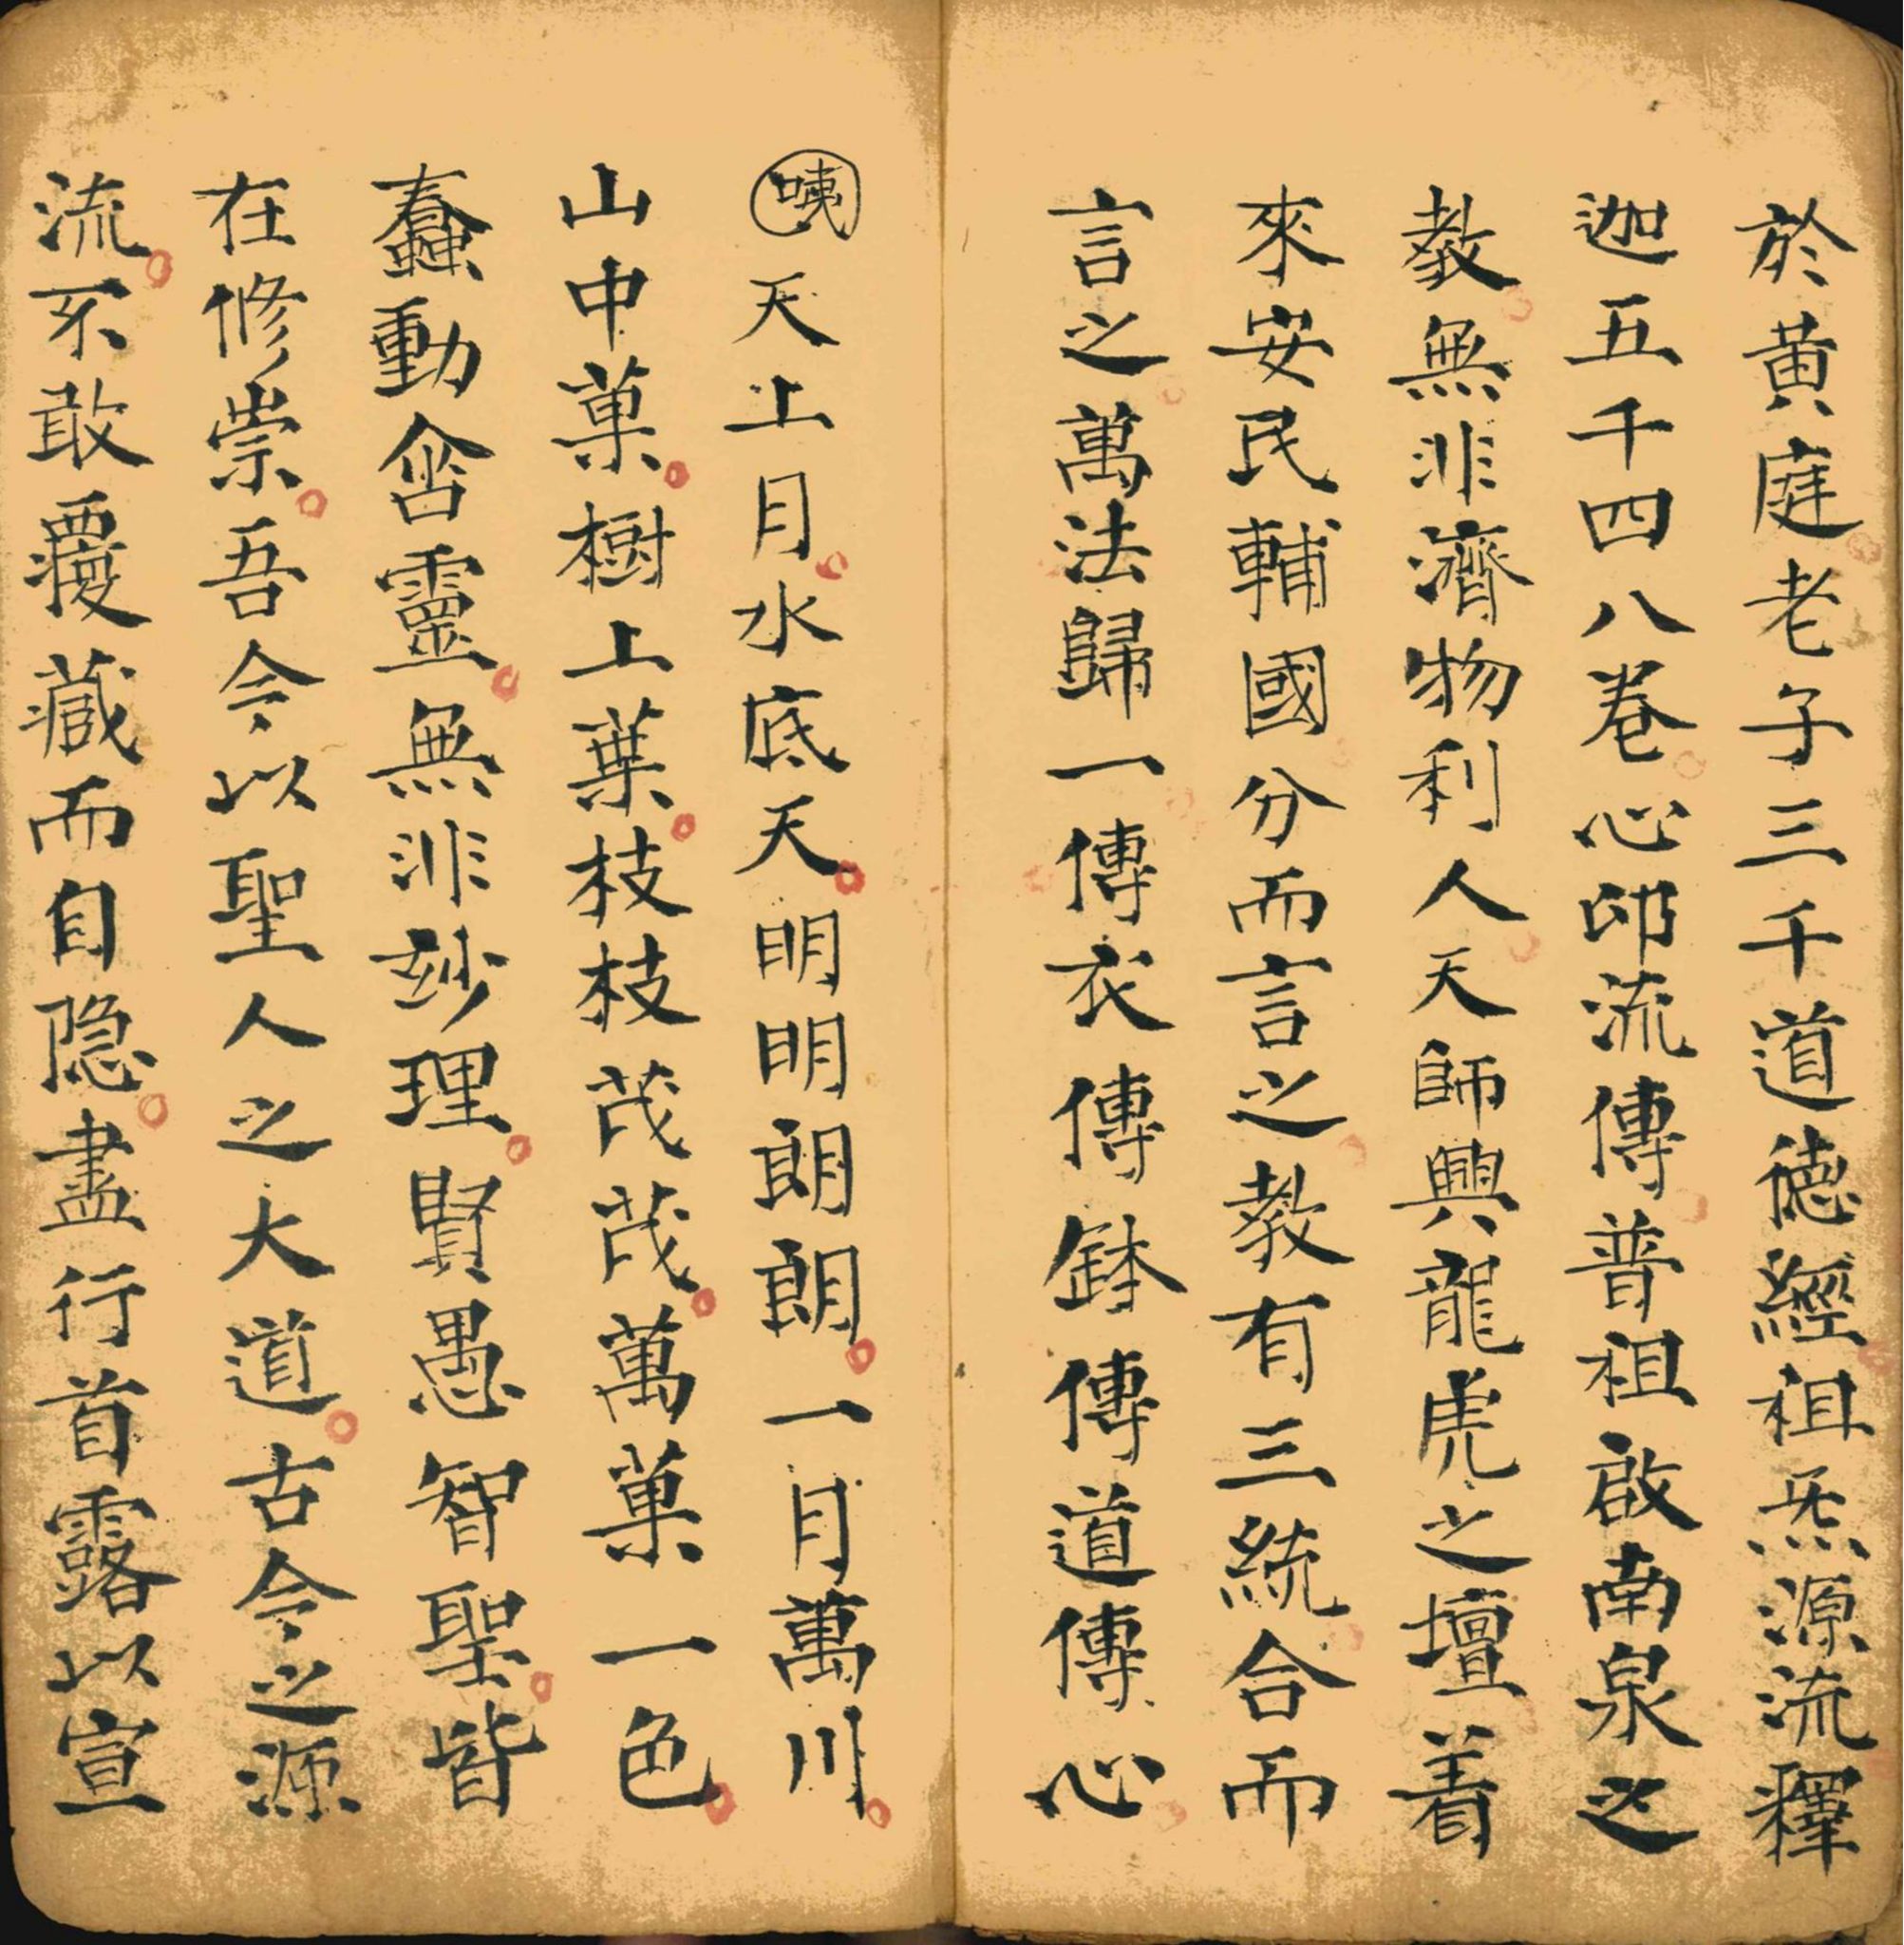 於黃庭老子三千道德經祖炁源流釋
迦五千四八卷心印流傳普祖啟南泉之
教無非濟物利人天師興龍虎之壇着
來安民輔國分而言之教有三統合而
言之萬法歸一傳衣傳鉢傳道傳心
咦天上月水底天明明朗朗一月萬川
山中菓樹上葉枝枝茂茂萬菓一色
蠢動含靈無非玅理賢愚智聖皆
在修崇吾今以聖人之大道古今之源
流不敢覆藏而自隐盡行首露以宣